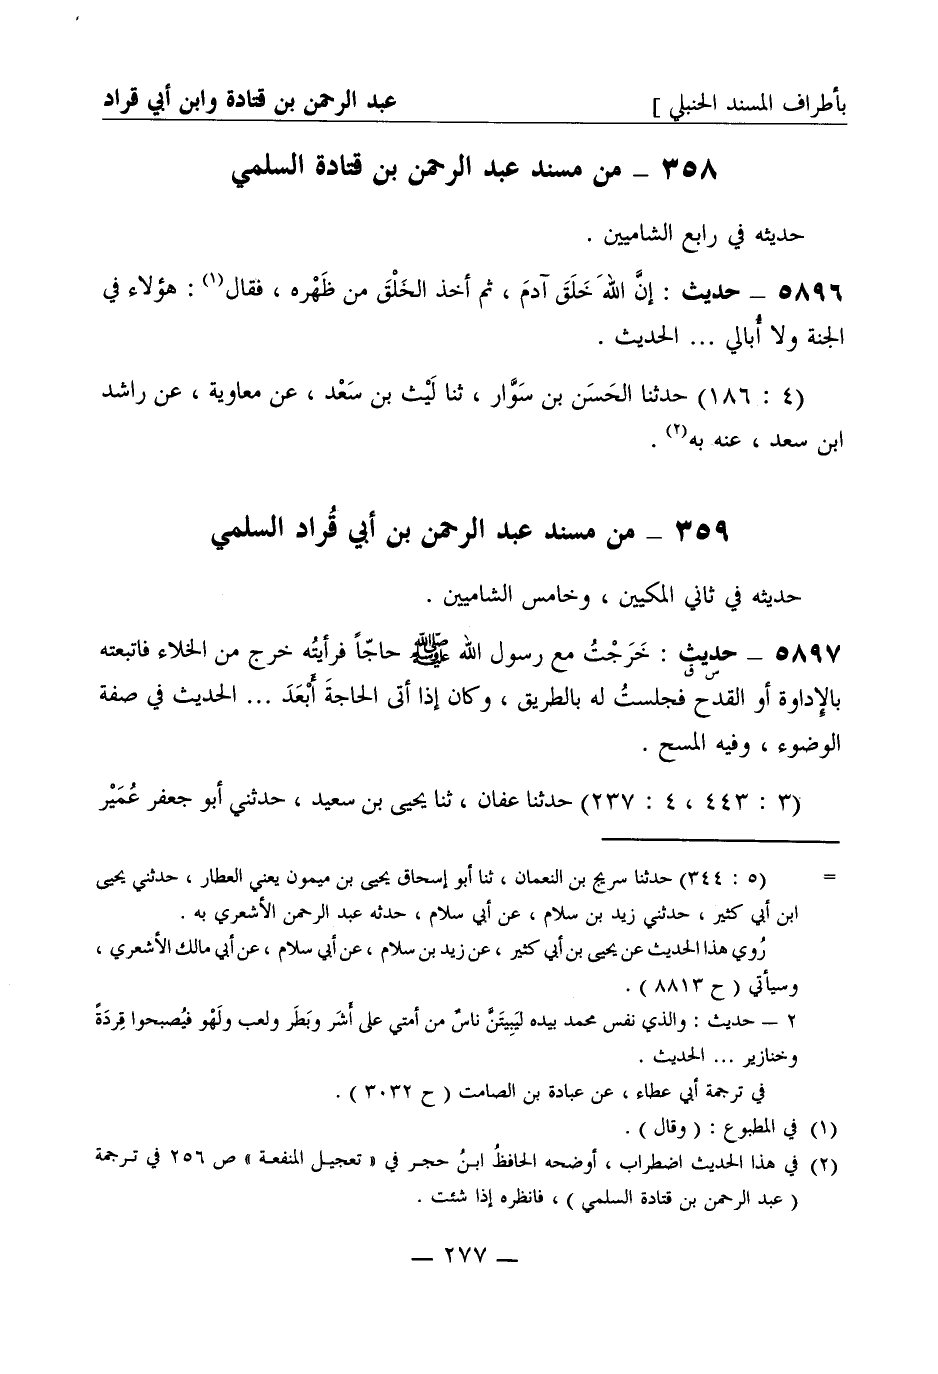 بأطراف المسند الحنبلي ] عبد الرحمن بن قتادة وابن أبي قراد
٣٥٨ ـ من مسند عبد الرحمن بن قتادة السلمي
حديثه في رابع الشاميين .
٥٨٩٦ ـ حديث : إنَّ اللهَ خَلَقَ آدمَ ، ثم أخذ الخَلْقَ من ظَهْره ، فقال(١) : هؤلاء في
الجنة ولا أُبالي ... الحديث .
(٤ : ١٨٦) حدثنا الحَسَن بن سَوَّار ، ثنا لَيْث بن سَعْد ، عن معاوية ، عن راشد
ابن سعد ، عنه به(٢) .
٣٥٩ ـ من مسند عبد الرحمن بن أبي قُراد السلمي
حديثه في ثاني المكيين ، وخامس الشاميين .
٥٨٩٧ ـ حديث : خَرَجْتُ مع رسول الله ﷺ حاجّاً فرأيتُه خرج من الخلاء فاتبعته
س ق
بالإداوة أو القدح فجلستُ له بالطريق ، وكان إذا أتى الحاجةَ أَبْعَدَ ... الحديث في صفة
الوضوء ، وفيه المسح .
(٣ : ٤٤٣ ، ٤ : ٢٣٧) حدثنا عفان ، ثنا يحيى بن سعيد ، حدثني أبو جعفر عُمَيْر
= (٥ : ٣٤٤) حدثنا سريج بن النعمان ، ثنا أبو إسحاق يحيى بن ميمون يعني العطار ، حدثني يحيى
ابن أبي كثير ، حدثني زيد بن سلام ، عن أبي سلام ، حدثه عبد الرحمن الأشعري به .
رُوي هذا الحديث عن يحيى بن أبي كثير ، عن زيد بن سلام ، عن أبي سلام ، عن أبي مالك الأشعري ،
وسيأتي ( ح ٨٨١٣ ) .
٢ ـ حديث : والذي نفس محمد بيده لَيَبِيتَنَّ ناسٌ من أمتي على أَشَر وبَطَر ولعب ولَهْو فيُصبحوا قِردَةً
وخنازير ... الحديث .
في ترجمة أبي عطاء ، عن عبادة بن الصامت ( ح ٣٠٣٢ ) .
(١) في المطبوع : ( وقال ) .
(٢) في هذا الحديث اضطراب ، أوضحه الحافظُ ابنُ حجر في « تعجيل المنفعة » ص ٢٥٦ في ترجمة
( عبد الرحمن بن قتادة السلمي ) ، فانظره إذا شئت .
ـ ٢٧٧ ـ